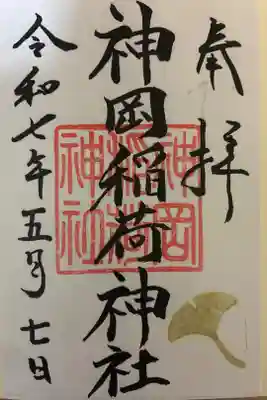 奉拝
神岡稲荷神社
神岡
稲荷
神社
令和七年五月七日